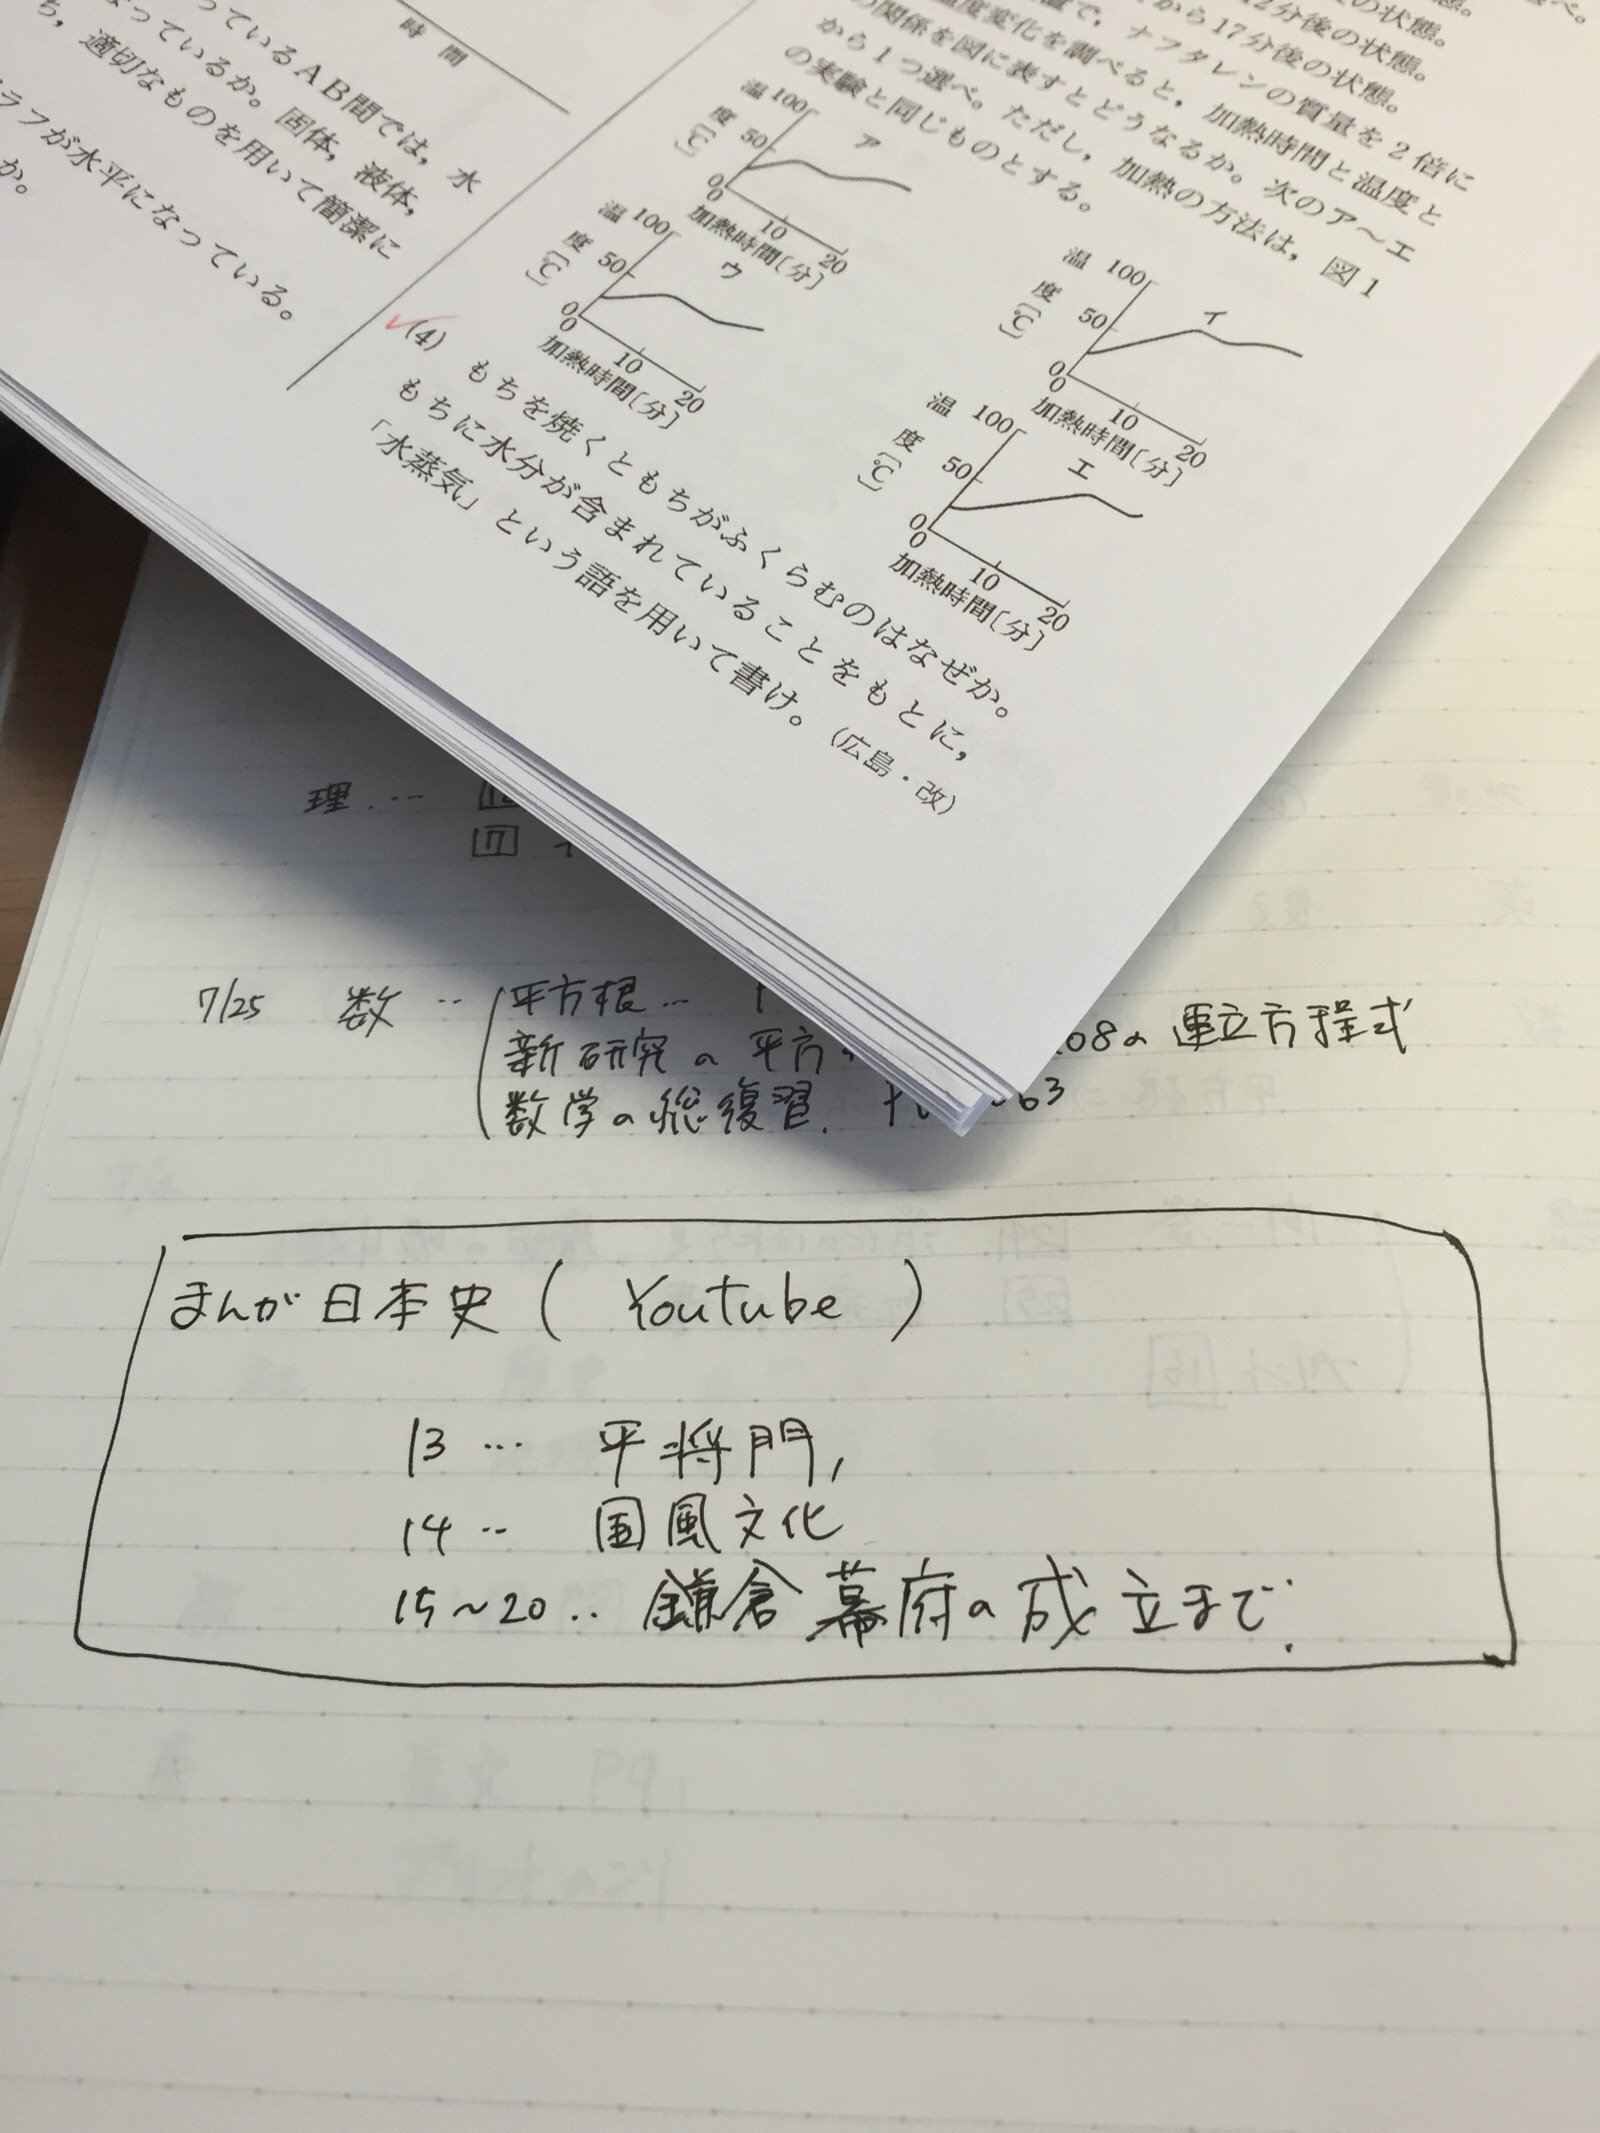 時間
っているAB間では，水
なっているか。固体，液体，
ち，適切なものを用いて簡潔に
ラフが水平になっている。
か。
の状態。
12分後の状態。
から17分後の状態。
で，ナフタレンの質量を2倍に
温度変化を調べると，加熱時間と温度と
の関係を図に表すとどうなるか。次のア〜エ
から1つ選べ。ただし，加熱の方法は，図1
の実験と同じものとする。
ア
温度〔℃〕
100
50
0
0 10 20
加熱時間〔分〕
イ
温度〔℃〕
100
50
0
0 10 20
加熱時間〔分〕
ウ
温度〔℃〕
100
50
0
0 10 20
加熱時間〔分〕
エ
温度〔℃〕
100
50
0
0 10 20
加熱時間〔分〕
(4) もちを焼くともちがふくらむのはなぜか。
もちに水分が含まれていることをもとに，
「水蒸気」という語を用いて書け。（広島・改）
理 …
17
7/25 数 … 平方根…
新研究の平方 08の連立方程式
数学の総復習. 63
まんが日本史( Youtube )
13 … 平将門,
14 … 国風文化
15〜20 … 鎌倉幕府の成立まで.